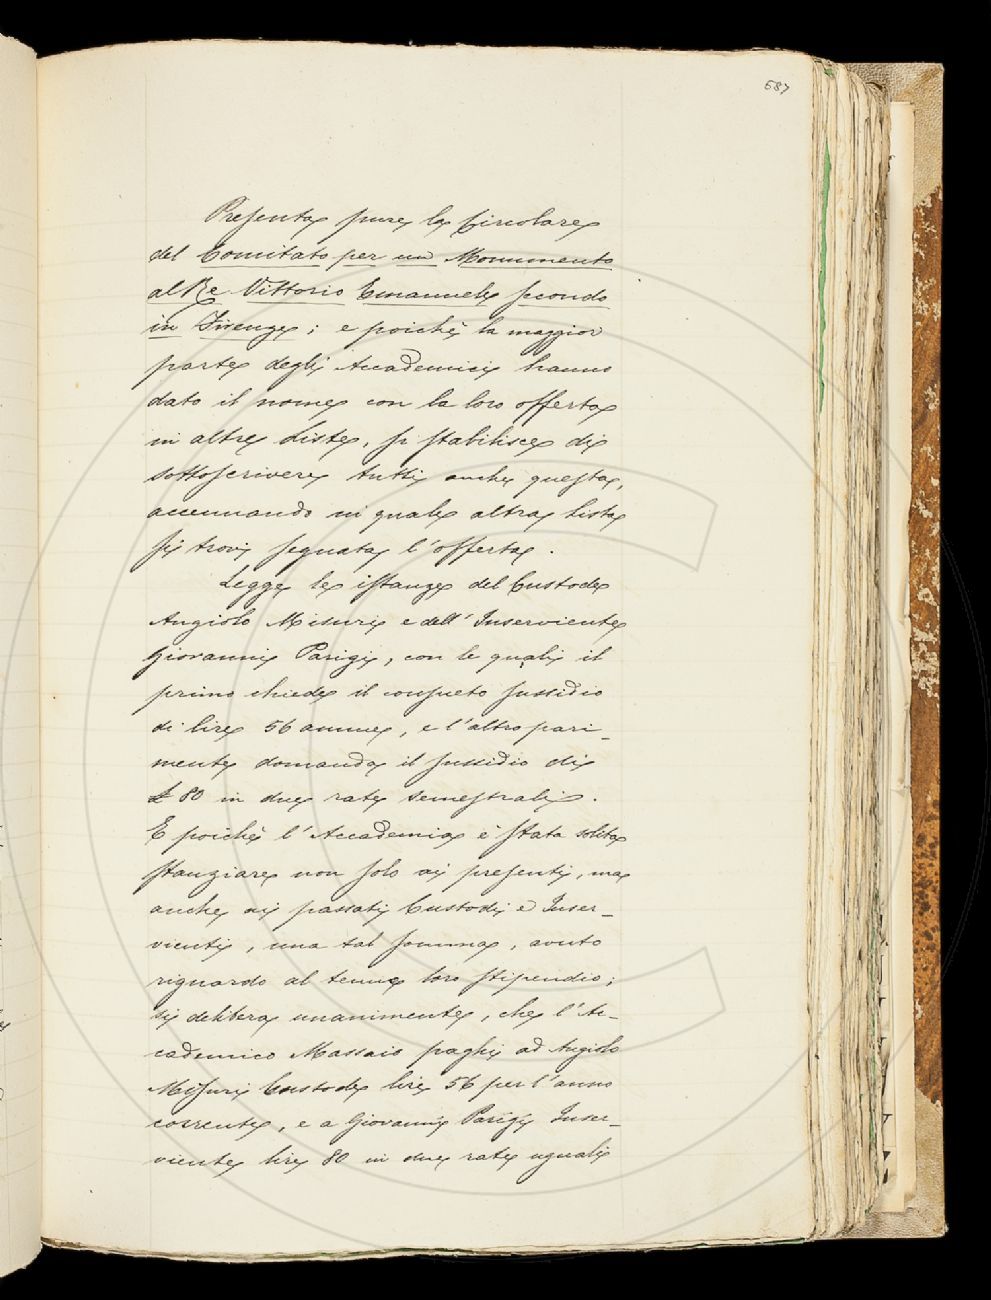 587
Presenta pure la Circolare
del Comitato per un Monumento
al Re Vittorio Emanuele secondo
in Firenze; e poichè la maggior
parte degli Accademici hanno
dato il nome con la loro offerta
in altre Liste, si stabilisce di
sottoscrivere tutti anche questa,
accennando in quale altra Lista
si trovi segnata l'offerta.
Legge le istanze del Custode
Angiolo Misuri e dell'Inserviente
Giovanni Parigi, con le quali il
primo chiede il consueto sussidio
di lire 56 annue, e l'altro pari-
mente domanda il sussidio di
£ 80 in due rate semestrali.
E poichè l'Accademia è stata solita
stanziare non solo ai presenti, ma
anche ai passati Custodi e Inser-
vienti, una tal somma, avuto
riguardo al tenue loro stipendio;
si delibera unanimente, che l'Ac-
cademico Massaio paghi ad Angiolo
Misuri Custode lire 56 per l'anno
corrente, e a Giovanni Parigi Inser-
viente lire 80 in due rate uguali